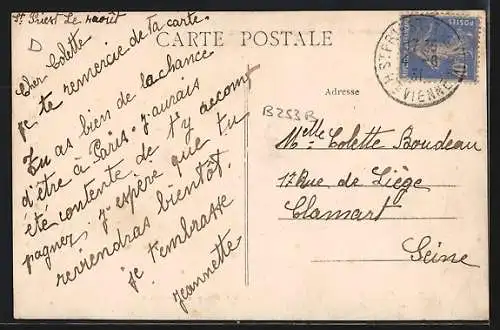 St Priest Le août
CARTE POSTALE
Cher Colette
Je te remercie de ta carte.
Tu as bien de la chance
d'être à Paris. J'aurais
été contente de t'y accom
pagner. J'espère que tu
reviendras bientôt.
Je t'embrasse
Jeannette
POSTES
ST PR
VIENNE
31
Adresse
B253B
Melle Colette Boudeau
17 Rue de Liège
Clamart
Seine